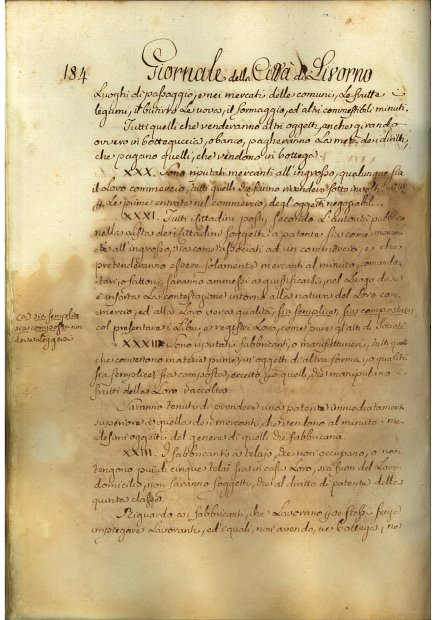 184 Giornale della Città di Livorno
Luoghi di passaggio, e nei mercati delle comuni, Le frutte
legumi, il butirro Le uova, il formaggio, ed altri commestibili minuti.
Tutti quelli che venderanno altri oggetti, anche girando
ovvero in botteguccia, o banco, pagheranno La metà dei diritti,
che pagano quelli, che vendono in bottega.
XXX. Sono reputati mercanti all'ingrosso, qualunque sia
il Loro commercio, tutti quelli che fanno vendere sotto
Le prime entrate nel commercio, degl'oggetti negoziabili.
XXXI. Tutti i cittadini posti, secondo L'autorità pubblica
nella Lista dei cittadini soggetti a patente sia come
all'ingrosso, sia come associati ad un commercio, e che
pretenderanno essere solamente mercanti al minuto,
o fattori, saranno ammessi a giustificare, nel Luogo dov'
è insorta La contestazione intorno alla natura del Loro com-
mercio, ed alla Loro vera qualità, sia semplice, sia composta
col presentare i Libri, e registri Loro, come pure gl'atti di Società
ca sia semplice
sia composta non
deve Leggersi
XXXII Sono reputati fabbricanti, o manifattori, tutti quelli
che convertono materie prime in oggetti d'altra forma, o qualità
sia semplice, sia composta, eccetto quelli, che manipulano
frutti delle Loro raccolte.
Saranno tenuti di prendere una patente immediatamente
superiore a quella dei mercanti, che vendono al minuto me-
desimi oggetti del genere di quelli che fabbricano.
XXIII. I fabbricanti a telajo, che non occupano, o non
tengono più di cinque telai sia in casa Loro, sia fuori del Loro
domicilio, non saranno soggetti, che al diritto di patente della
quinta classe.
Riguardo ai fabbricanti, che Lavorano per se stessi senza
impiegare Lavoranti, ed i quali, non avendo, ne bottega, ne